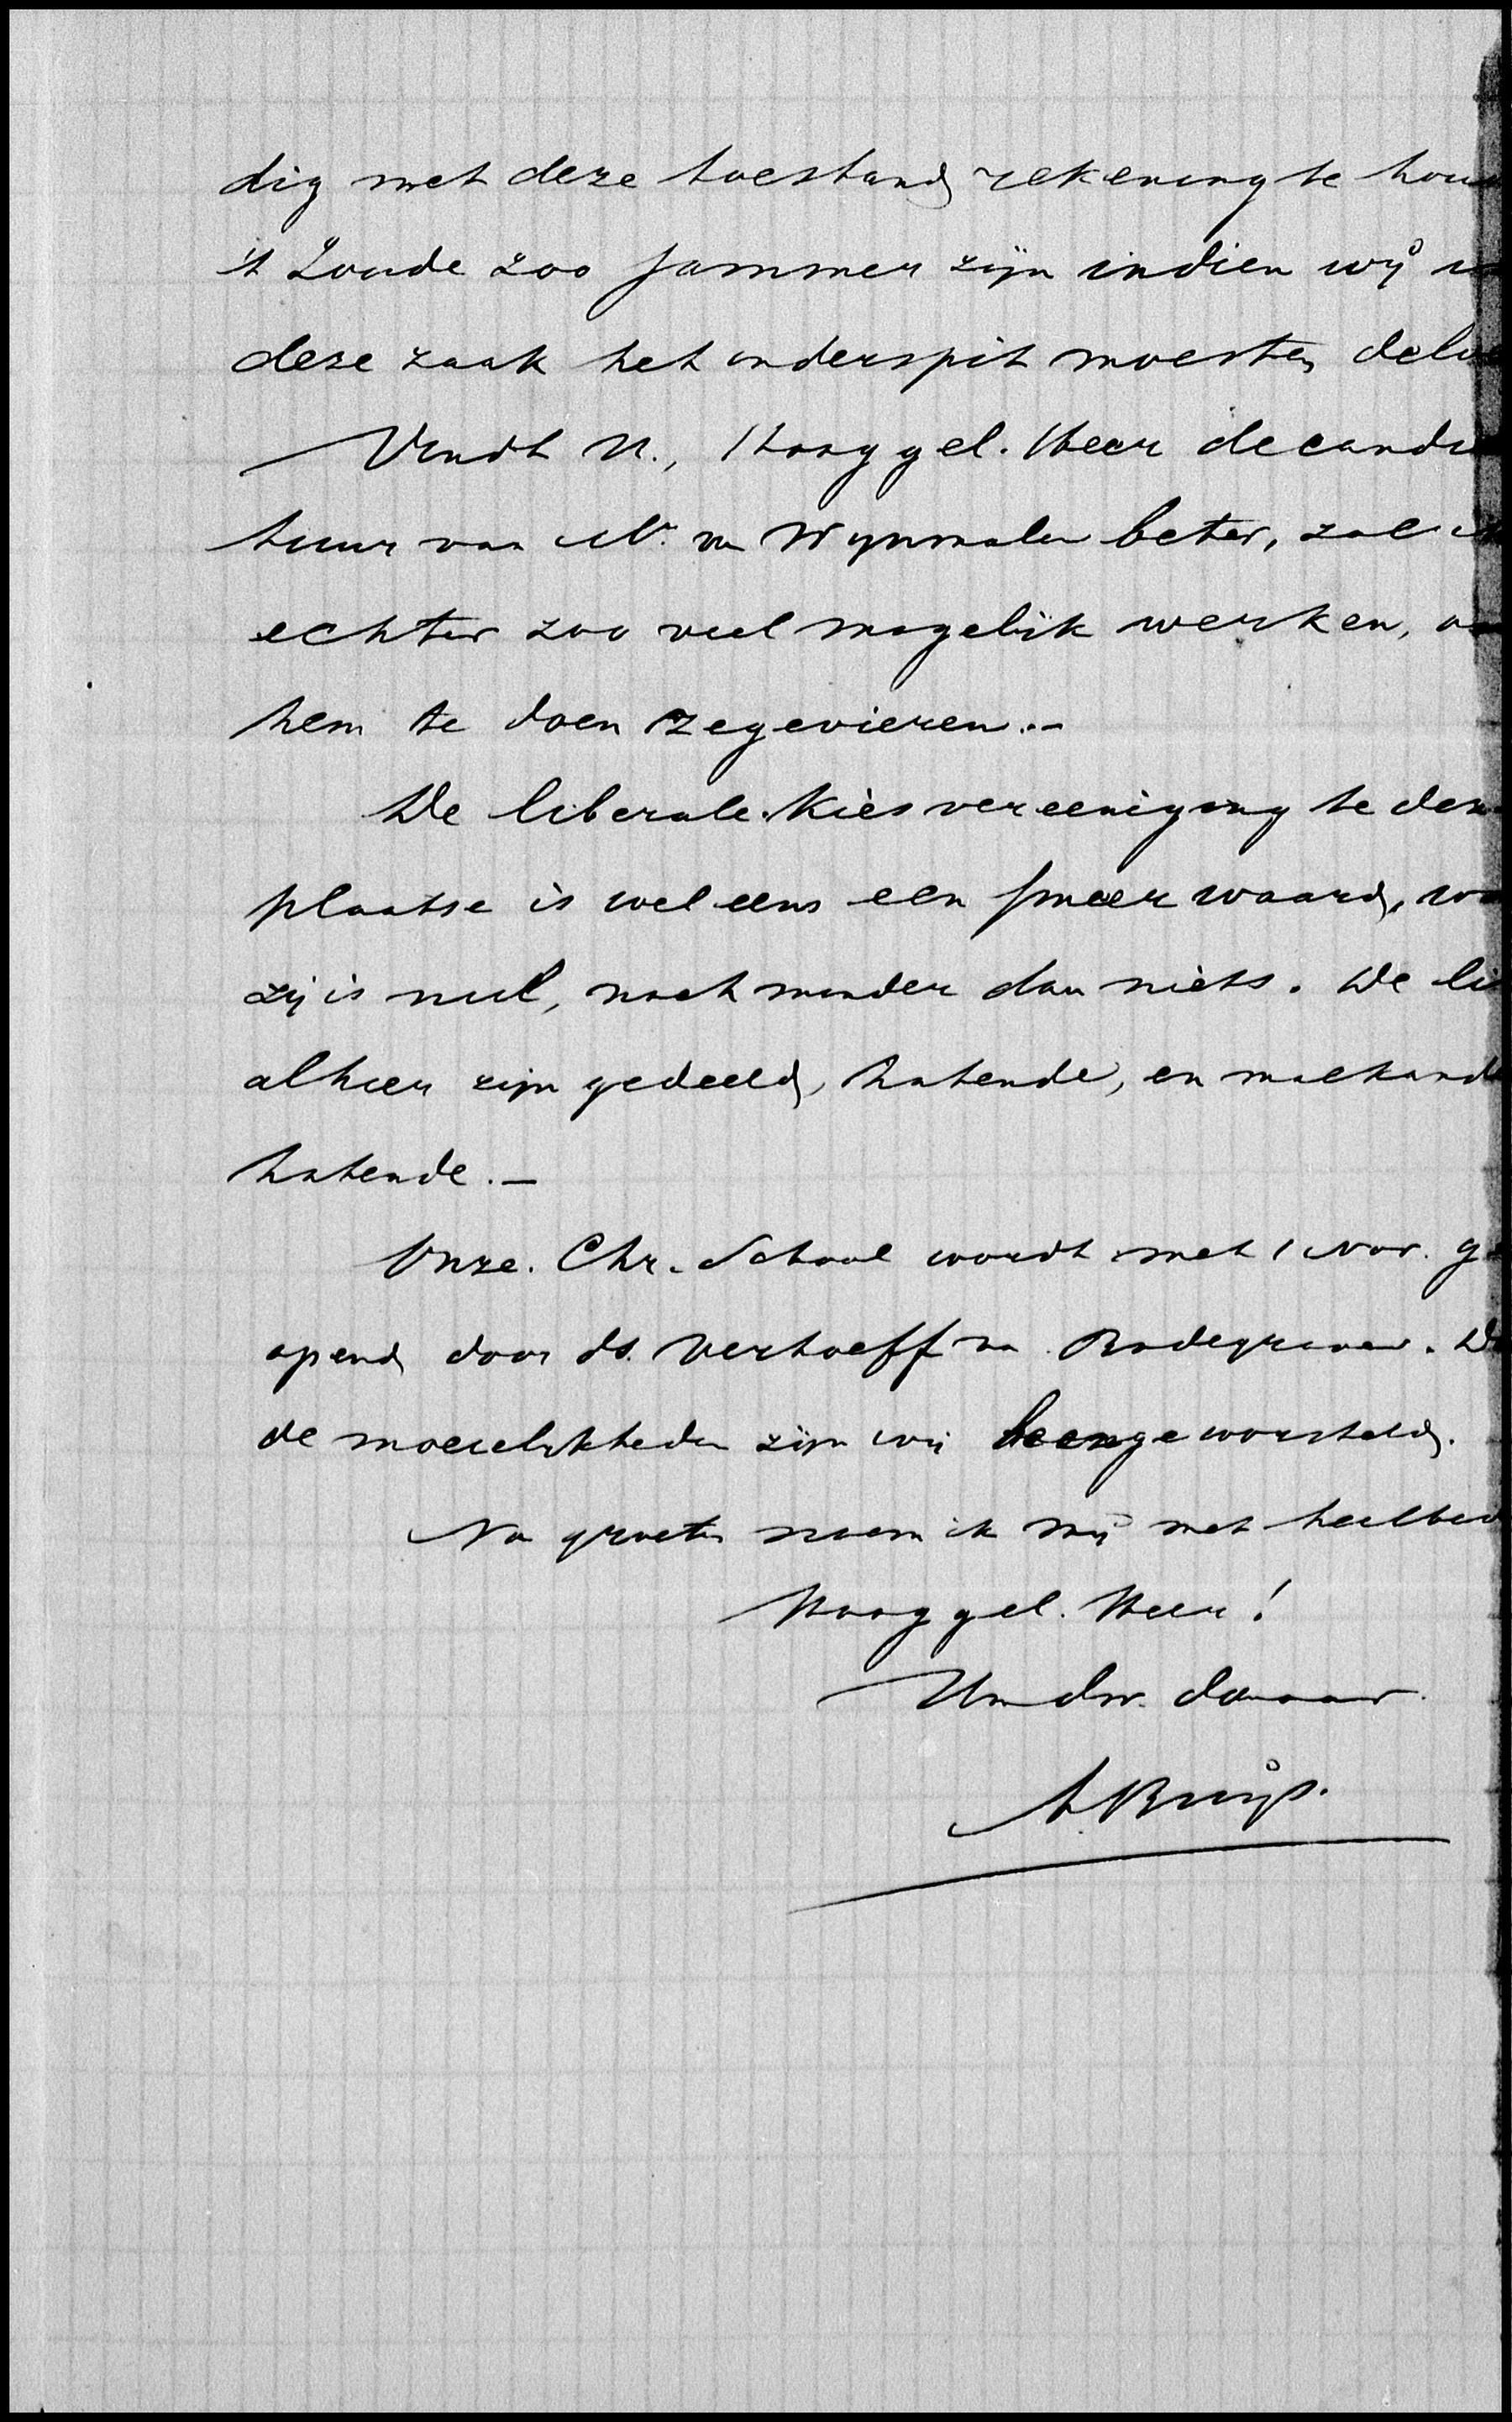 dig met deze toestand rekening te hou
't Zoude zoo jammer zijn indien wij
deze zaak het onderspit moesten delv
Vindt U., Hooggel. Heer de candi
tuur van Mr. v. Wijnmalen beter, zal
echter zoo veel mogelijk werken, o
hem te doen zegevieren.-
De liberale Kiesvereeniging te dezer
plaatse is wel eens een waard, w
zij is nul, noch minder dan niets. De li
alhier zijn gedeeld, hatende, en malkande
hatende.-
Onze Chr. School wordt met 1 Nov. g
opend door ds. Verhoeff v. Bodegraven. D
de moeielijkheden zijn wij heengeworsteld.
Na groeten noem ik mij met heilbed
Hooggel. Heer!
Uw dw. dienaar
A Buijs.